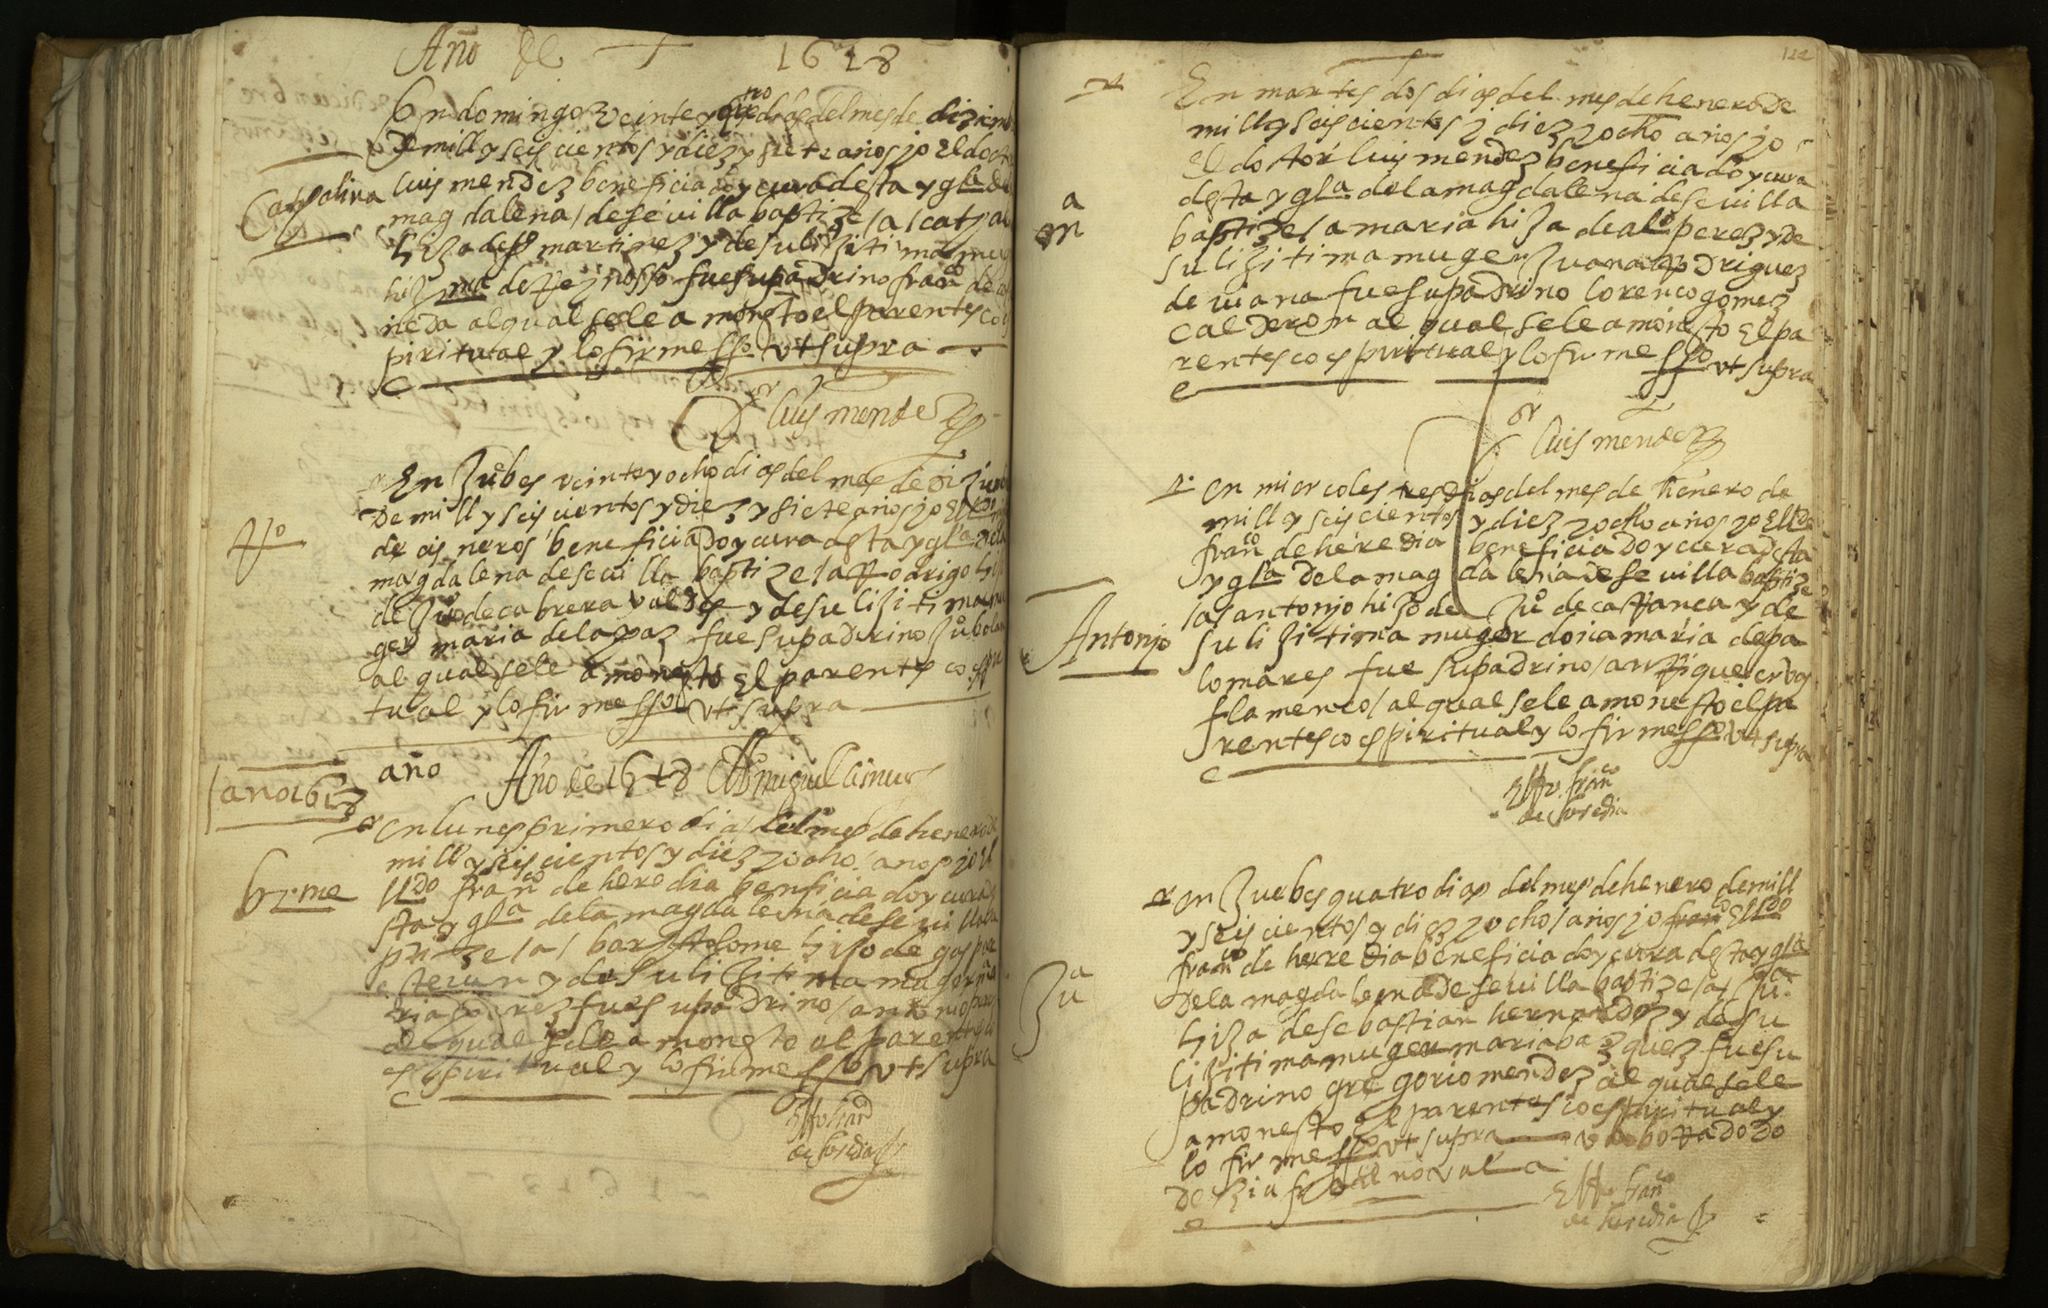 Año de 1618
En domingo veinte y quatro dias del mes de dizienb
de mill y seis cientos y diez y siete años yo El doctor
Catalina
luis mendez beneficiado y cura desta ygla de la
magdalena / de sevilla baptize / a / catal
hija de martinez y de su lijitima mug
fue su padrino franco de
neda al qual se le amonesto el parentesco es
piritual y lo firme ffo ut supra
Dor luis mendez
En Juebes veinte y ocho dias del mes de dizienb
de mill y seis cientos y diez y siete años yo El
Ro
de cisneros beneficiado y cura desta ygla de la
magdalena de sevilla baptize / a Rodrigo hijo
de Juo de cabrera valdes y de su lijitima mu
ger maria de la paz fue su padrino Juo
al qual se le amonesto El parentesco espiri
tual y lo firme ffo ut supra
año Año de 1618 miguel cisneros
año 1618
en lunes primero dia del mes de henero de
mill y seis cientos y diez y ocho / años yo El
brme
lldo franco de heredia beneficiado y cura de
sta ygla de la magdalena de sevilla ba
ptize / a / bartolome hijo de gaspar
estevan y de su lijitima muger ma
ria perez fue su padrino / antonio
al qual se le amonesto el parentesco
espiritual y lo firme ffo ut supra
El lldo franco
de heredia
122
En martes dos dias del mes de henero de
mill y seis cientos y diez y ocho años yo
el doctor luis mendez beneficiado y cura
desta ygla de la magdalena de sevilla
ma
baptize / a maria hija de alo perez y de
su lijitima muger Juana Rodriguez
de viana fue su padrino lorenco gomez
calderon al qual se le amonesto El pa
rentesco espiritual y lo firme ffo ut supra
Dor luis mendez
en miercoles tres dias del mes de henero de
mill y seis cientos y diez y ocho años yo El lldo
franco de heredia beneficiado y cura desta
ygla de la magdalena de sevilla baptize
Antonjo
/ a / antonjo hijo de Juo de carranca y de
su lijitima muger doña maria de pa
lomares fue su padrino / anrrique
flamenco / al qual se le amonesto el pa
rentesco espiritual y lo firme ffo ut supra
El lldo franco
de heredia
en Juebes quatro dias del mes de henero de mill
y seis cientos y diez y ocho / años yo franco El lldo
franco de heredia beneficiado y cura desta ygla
Jua
de la magdalena de sevilla baptize / a / Jua
hija de sebastian hernandez y de su
lijitima muger maria bazquez fue su
padrino gregorio mendez al qual se le
amonesto el parentesco espiritual y
lo firme ffo ut supra va borrado do
dezia franco no vala
El lldo franco
de heredia